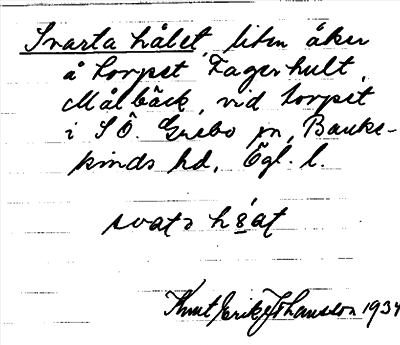 Svarta hålet, liten åker
å torpet Fagerhult,
Målbäck, vid torpet
i SÖ. Grebo sn, Banke-
kinds hd, Ögl. l.
svata hålat
Knut Erik Johansson 1934